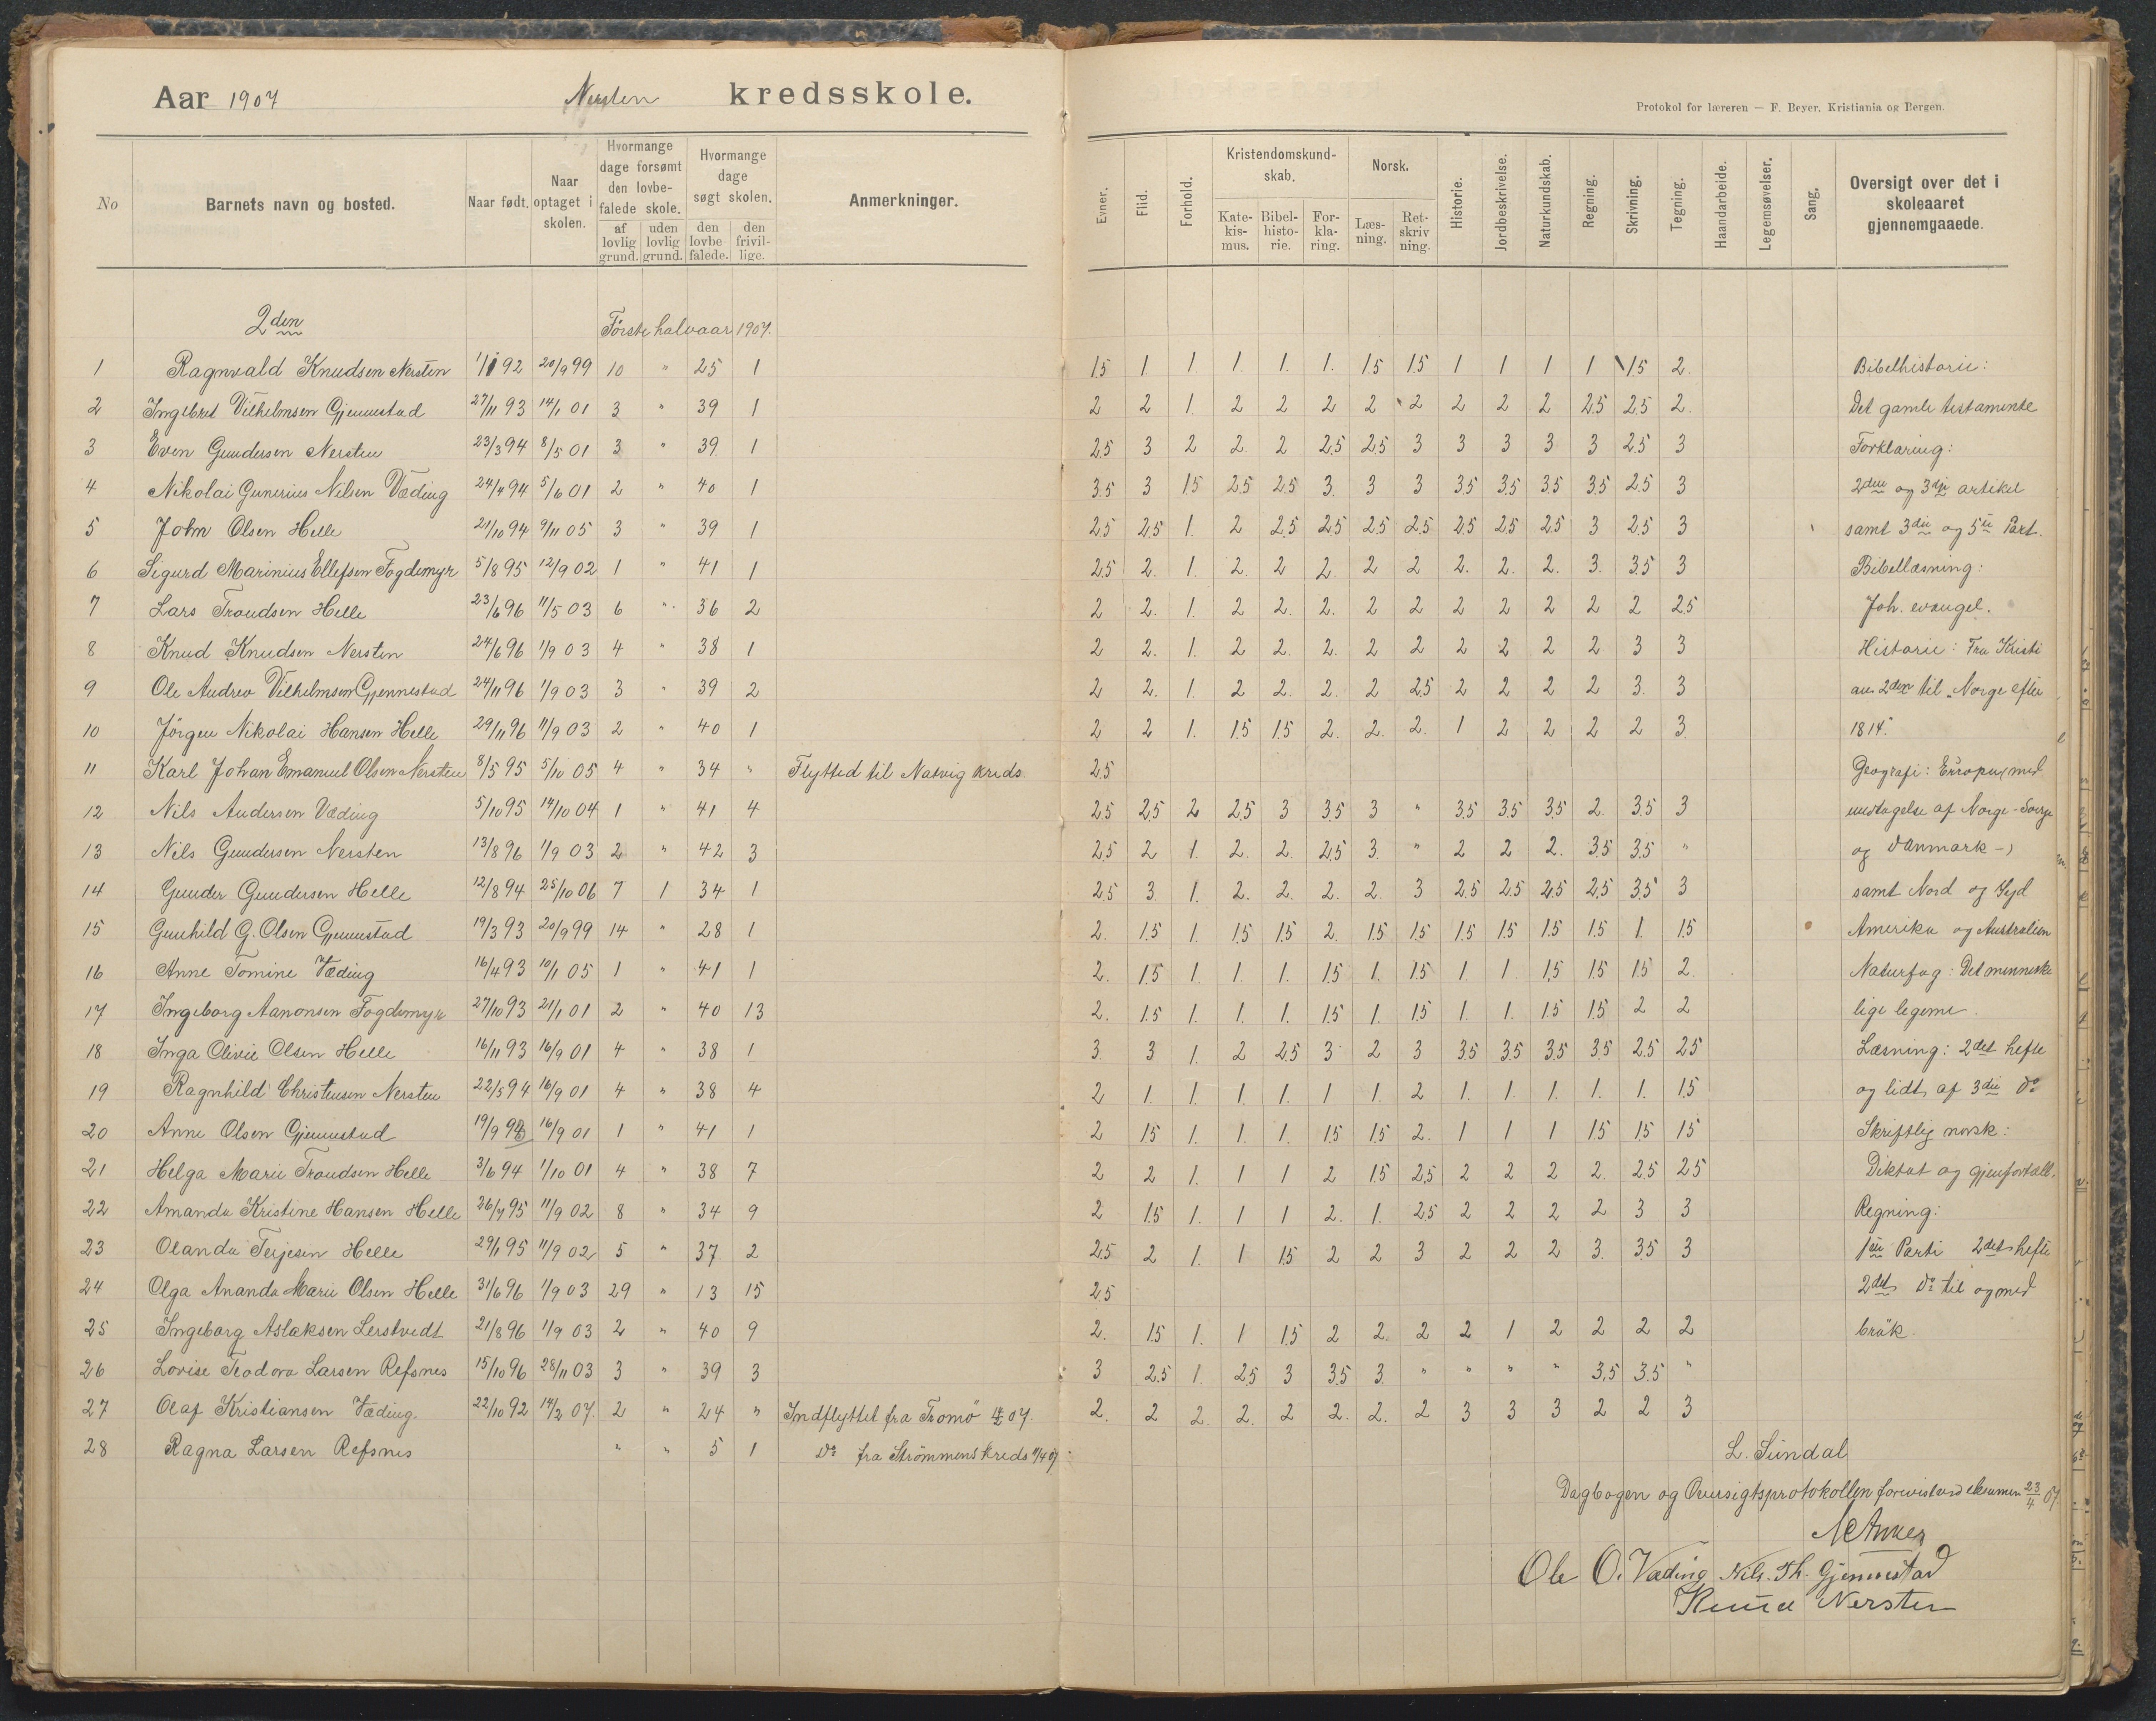 Aar 1907 Nersten kredsskole.
Protokol for læreren — F. Beyer, Kristiania og Bergen.
No
Barnets navn og bosted.
Naar født.
Naar optaget i skolen.
Hvormange dage forsømt den lovbefalede skole.
af lovlig grund.
uden lovlig grund.
Hvormange dage søgt skolen.
den lovbefalede.
den frivillige.
Anmerkninger.
Evner.
Flid.
Forhold.
Kristendomskundskab.
Katekismus.
Bibelhistorie.
Forklaring.
Norsk.
Læsning.
Retskrivning.
Historie.
Jordbeskrivelse.
Naturkundskab.
Regning.
Skrivning.
Tegning.
Haandarbeide.
Legemsøvelser.
Sang.
Oversigt over det i skoleaaret gjennemgaaede.
2den Første halvaar 1907.
1 Ragnvald Knudsen Nersten 1/1 92 20/9 99 10 " 25 1 1,5 1 1. 1. 1. 1. 1,5 1,5 1 1 1 1 1,5 2. Bibelhistorie:
2 Ingebret Vilhelmsen Gjennestad 27/11 93 14/1 01 3 " 39 1 2 2 1. 2 2 2 2 2 2 2 2 2,5 2,5 2. Det gamle testamente
3 Even Gundersen Nersten 23/3 94 8/5 01 3 " 39. 1 2,5 3 2 2. 2 2,5 2,5 3 3 3 3 3 2,5 3 Forklaring:
4 Nikolai Gunerius Nilsen Væding 24/4 94 5/6 01 2 " 40 1 3,5 3 1,5 2,5 2,5 3. 3 3 3,5 3,5 3,5 3,5 2,5 3 2den og 3die artikel
5 John Olsen Helle 21/10 94 9/11 05 3 " 39 1 2,5 2,5 1. 2 2,5 2,5 2,5 2,5 2,5 2,5 2,5 3 2,5 3 samt 3die og 5te Part.
6 Sigurd Marinius Ellefsen Fogdemyr 5/8 95 12/9 02 1 " 41 1 2,5 2. 1. 2. 2 2. 2 2 2. 2. 2. 3. 3,5 3 Bibellæsning:
7 Lars Troudsen Helle 23/6 96 11/5 03 6 " 36 2 2 2. 1. 2 2. 2. 2 2 2 2 2 2 2 2,5 Joh. evangel.
8 Knud Knudsen Nersten 24/6 96 1/9 03 4 " 38 1 2 2. 1. 2 2. 2. 2 2 2 2 2 2 3 3 Historie: Fra Kristi
9 Ole Andrea Vilhelmsen Gjennestad 24/11 96 1/9 03 3 " 39 2 2 2. 1. 2 2. 2. 2 2,5 2 2 2 2 3. 3 an 2den til "Norge efter
10 Jörgen Nikolai Hansen Helle 29/11 96 11/9 03 2 " 40 1 2 2 1. 1,5 1,5 2. 2. 2. 1 2 2 2 2 3. 1814."
11 Karl Johan Emanuel Olsen Nersten 8/5 95 5/10 05 4 " 34 " Flytted til Natvig kreds 2,5 Geografi: Europa (med
12 Nils Andersen Væding 5/10 95 14/10 04 1 " 41 4 2,5 2,5 2 2,5 3 3,5 3 " 3,5 3,5 3,5 2. 3,5 3 undtagelse af Norge-Sverge
13 Nils Gundersen Nersten 13/8 96 1/9 03 2 " 42 3 2,5 2 1. 2. 2. 2,5 3. " 2 2 2. 3,5 3,5 " og Danmark -)
14 Gunder Gundersen Helle 12/8 94 25/10 06 7 1 34 1 2,5 3 1. 2. 2. 2. 2. 3 2,5 2,5 2,5 2,5 3,5 3 samt Nord og Syd
15 Gunhild G. Olsen Gjennestad 19/3 93 20/9 99 14 " 28 1 2. 1,5 1. 1,5 1,5 2. 1,5 1,5 1,5 1,5 1,5 1,5 1. 1,5 Amerika og Australien
16 Anne Tomine Væding 16/4 93 10/1 05 1 " 41 1 2. 1,5 1. 1. 1. 1,5 1. 1,5 1 1 1,5 1,5 1,5 2. Naturfag: Det menneske
17 Ingeborg Aanonsen Fogdemyr 27/10 93 21/1 01 2 " 40 13 2. 1,5 1. 1. 1. 1,5 1. 1,5 1. 1. 1,5 1,5 2 2 lige legeme.
18 Inga Olivie Olsen Helle 16/11 93 16/9 01 4 " 38 1 3. 3 1. 2 2,5 3 2 3 3,5 3,5 3,5 3,5 2,5 2,5 Læsning: 2det hefte
19 Ragnhild Christensen Nersten 22/5 94 16/9 01 4 " 38 4 2 1. 1. 1. 1. 1 1. 2 1. 1. 1. 1. 1. 1,5 og lidt af 3die do
20 Anne Olsen Gjennestad 19/9 93 16/9 01 1 " 41 1 2 1,5 1. 1. 1. 1,5 1,5 2. 1 1 1 1,5 1,5 1,5 Skriftlig norsk:
21 Helga Marie Troudsen Helle 3/6 94 1/10 01 4 " 38 7 2 2 1. 1 1 2 1,5 2,5 2 2 2 2. 2,5 2,5 Diktat og gjenfortæll.
22 Amanda Kristine Hansen Helle 26/7 95 11/9 02 8 " 34 9 2 1,5 1. 1 1 2. 1. 2,5 2 2 2 2 3 3 Regning:
23 Olanda Terjesen Helle 29/1 95 11/9 02 5 " 37 2 2,5 2 1. 1 1,5 2 2 3 2 2 2 3. 3,5 3 1ste Parti 2det hefte
24 Olga Ananda Marie Olsen Helle 31/6 96 1/9 03 29 " 13 15 2,5 2det do til og med
25 Ingeborg Aslaksen Lerstvedt 21/8 96 1/9 03 2 " 40 9 2. 1,5 1. 1 1,5 2 2. 2 2 1 2 2 2 2 bråk.
26 Lovise Teodora Larsen Refsnes 15/10 96 28/11 03 3 " 39 3 3 2,5 1. 2,5 3 3,5 3. " " " " 3,5 3,5 "
27 Olaf Kristiansen Væding. 22/10 92 14/2 07. 2 " 24 " Indflyttet fra Tromö 14/2 07. 2. 2 2. 2. 2 2. 2. 2 3 3 3 2 2 3
28 Ragna Larsen Refsnes " " 5 1 do fra Strömmens kreds 11/4 07
L. Sündal
Dagbogen og Oversigtsprotokollen forevist ved eksamen 23/4 07.
Ole O. Væding Nils. Th. Gjennestad
Knud Nersten